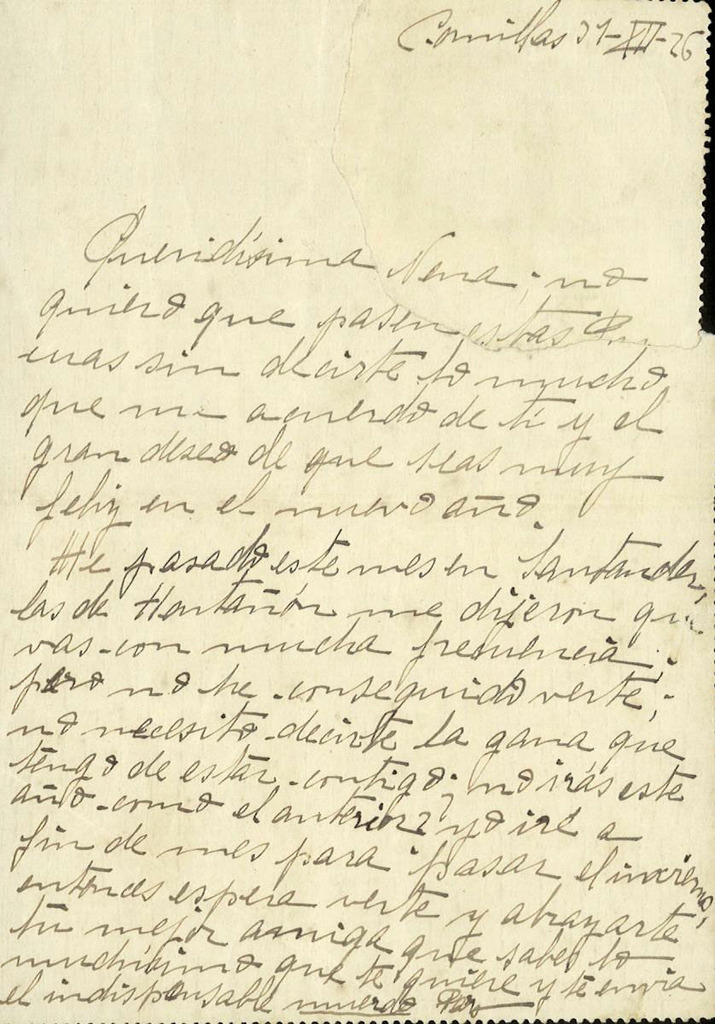 Comillas 31-XII-26
Queridísima Nena; no
quiero que pasen estas Pas
cuas sin decirte lo mucho
que me acuerdo de ti y el
gran deseo de que seas muy
feliz en el nuevo año.
He pasado este mes en Santander,
las de Hontañón me dijeron que
vas con mucha frecuencia,
pero no he conseguido verte,
no necesito decirte la gana que
tengo de estar contigo; no irás este
año como el anterior? yo iré a
fin de mes para pasar el invierno,
entonces espera verte y abrazarte
tu mejor amiga que sabes lo
muchísimo que te quiere y te envia
el indispensable muerdo